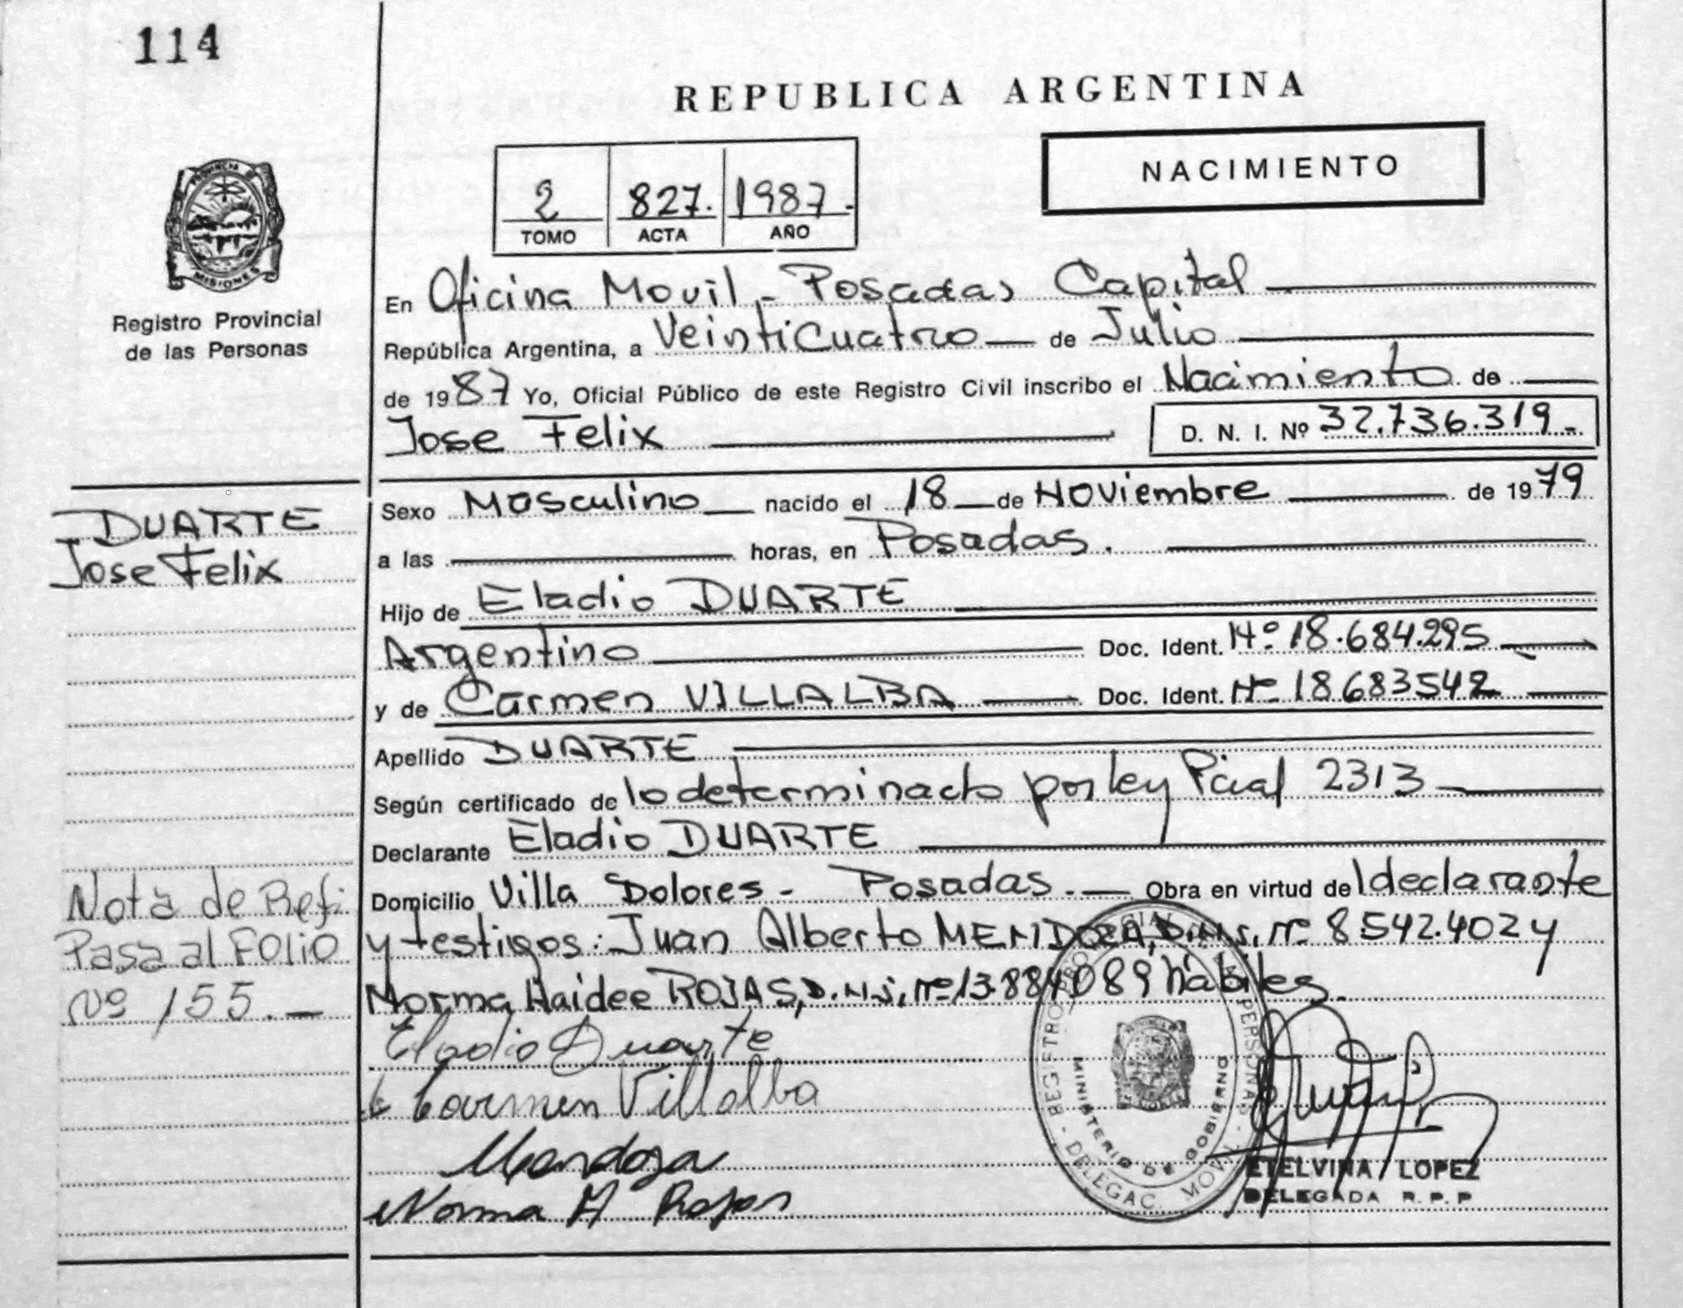 114
REPUBLICA ARGENTINA
NACIMIENTO
2 827. 1987.
TOMO ACTA AÑO
PROVINCIA D
MISIONES
Registro Provincial
de las Personas
En Oficina Movil - Posadas Capital
República Argentina, a Veinticuatro de Julio
de 1987 Yo, Oficial Público de este Registro Civil inscribo el Nacimiento de
Jose Felix D. N. I. Nº 32.736.319-
DUARTE
Jose Felix
Sexo Masculino nacido el 18 de Noviembre de 1979
a las horas, en Posadas.
Hijo de Eladio DUARTE
Argentino Doc. Ident. Nº 18.684.295
y de Carmen VILLALBA Doc. Ident. Nº 18683542
Apellido DUARTE
Según certificado de lo determinado por ley Pcial 2313
Declarante Eladio DUARTE
Domicilio Villa Dolores - Posadas. Obra en virtud de declarante
y testigos: Juan Alberto MENDOZA, D.N.I. nº 8542.402 y
Norma Haidee ROJAS, D.N.I. nº 13.884089 hábiles.
Nota de Refi
Pasa al Folio
Nº 155.-
Eladio Duarte
Carmen Villalba
Mendoza
Norma H Rojas
MINISTERIO DE GOBIERNO
ETELVINA LOPEZ
DELEGADA R.P.P